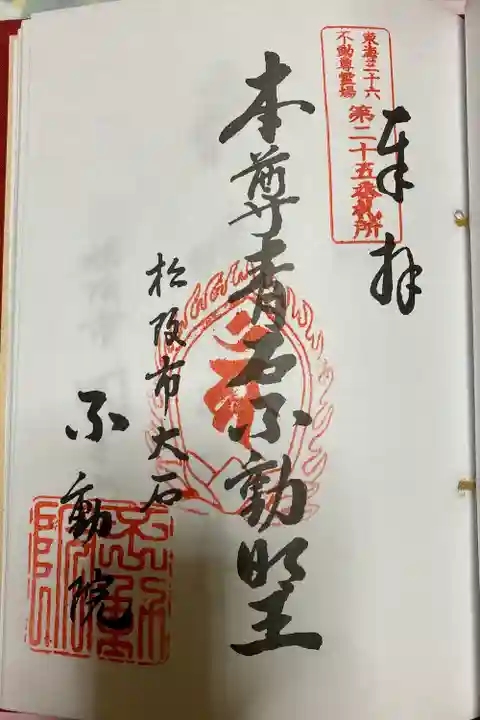 東海三十六
不動尊霊場
第二十五番札所
奉拝
本尊青石不動明王
松阪市大石
不動院